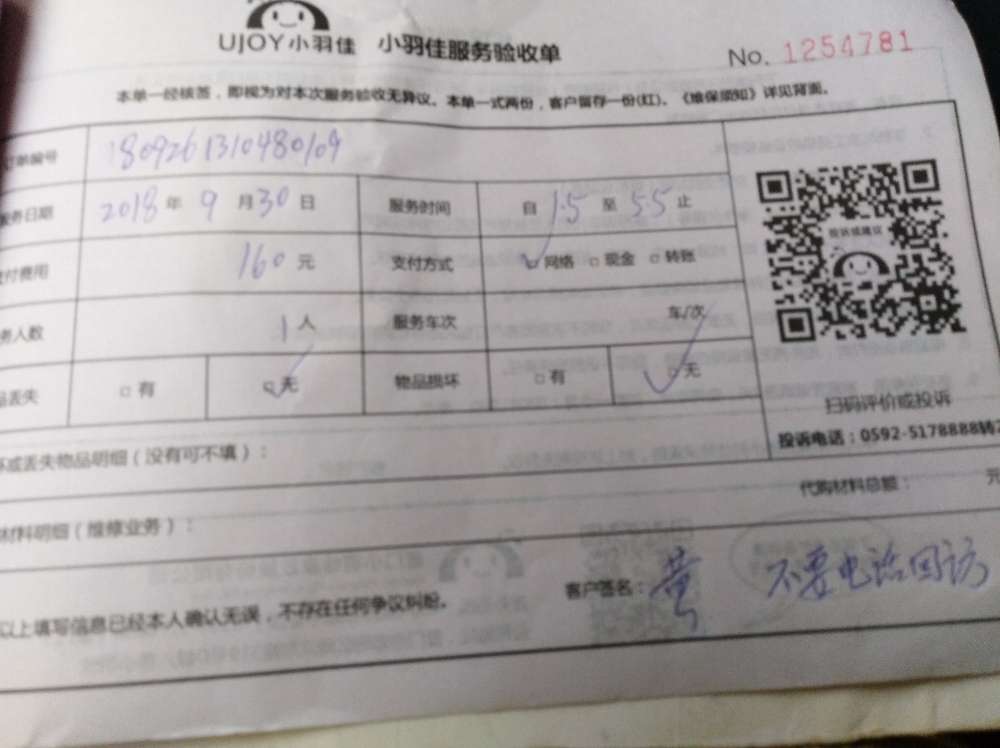 UJOY小羽佳 小羽佳服务验收单
No. 1254781
本单一经核签，即视为对本次服务验收无异议。本单一式两份，客户留存一份(红)。《维保须知》详见背面。
订单编号 1809261310480109
服务日期 2018年9月30日 服务时间 自 1.5 至 5.5 止
支付费用 160元 支付方式 网络 现金 转账
务人数 1人 服务车次 车/次
品丢失 有 无 物品损坏 有 无
投诉或建议
扫码评价或投诉
投诉电话：0592-5178888转2
坏或丢失物品明细（没有可不填）：
代购材料总额： 元
材料明细（维修业务）：
客户签名：黄 不要电话回访
以上填写信息已经本人确认无误，不存在任何争议纠纷。